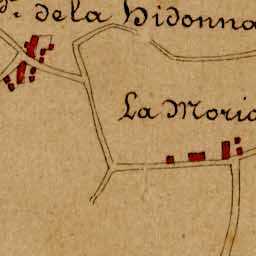 de la Vidonna
La Moric